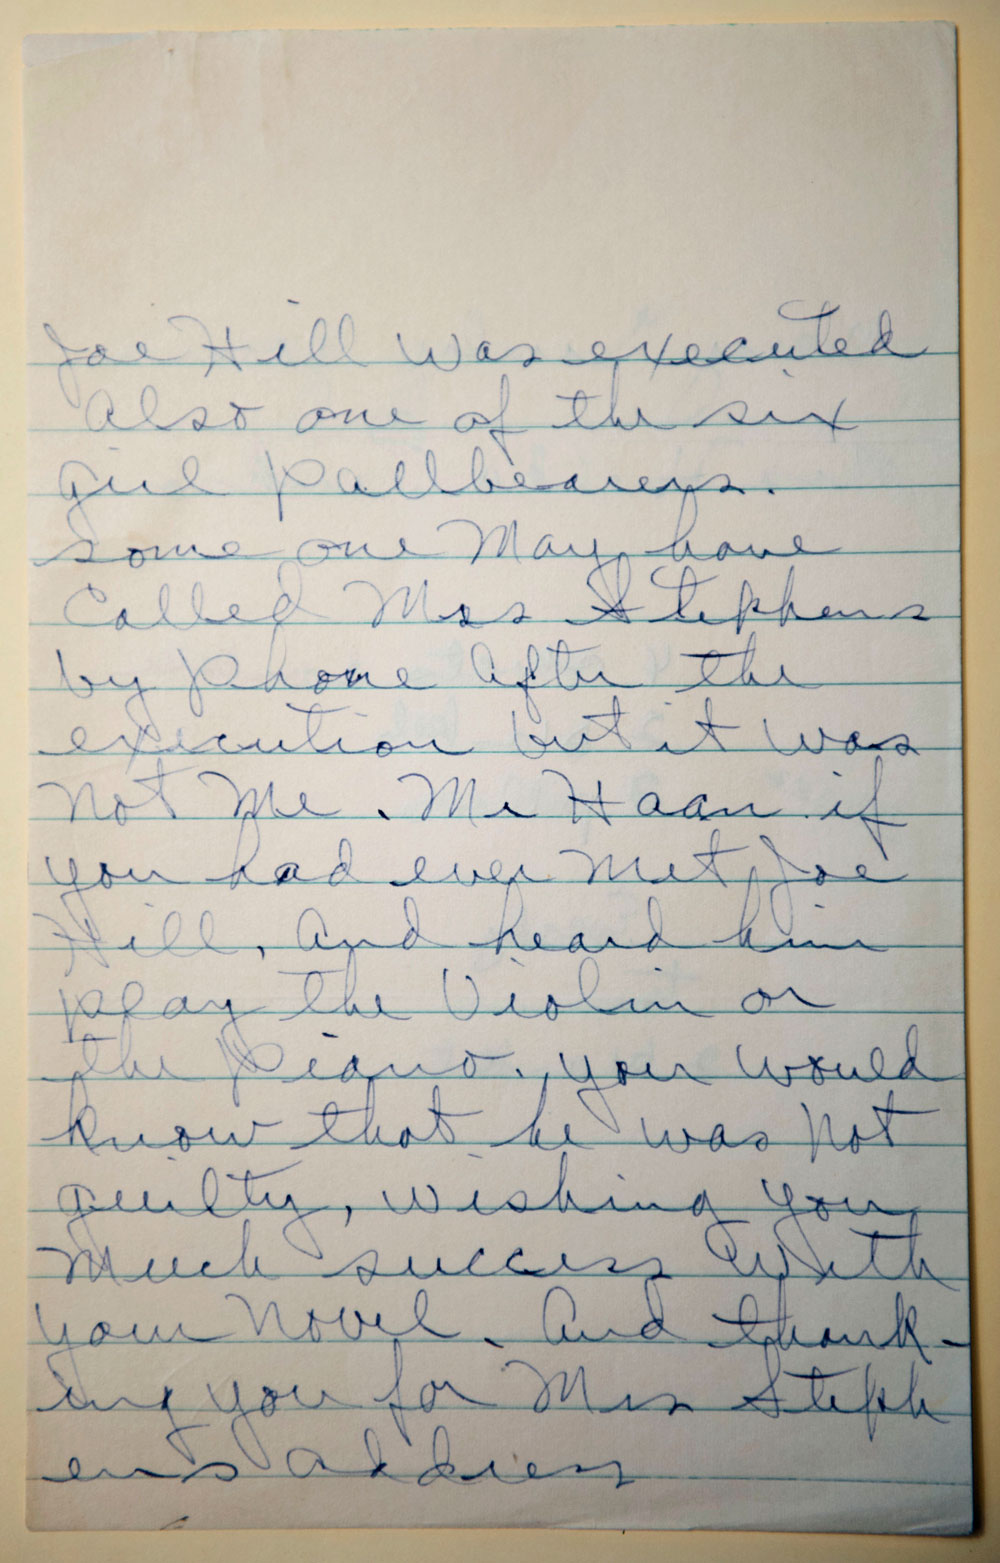 Joe Hill was executed
Also one of the six
girl Pallbearers.
Some one May have
Called Mrs Stephens
by Phone After the
execution but it was
Not Me. Mr Haan if
you had ever Met Joe
Hill, And heard him
Play the Violin or
the Piano. you would
know that he was Not
guilty, wishing you
Much success With
your Novel. And thank-
ing you for Mrs Steph
ens address